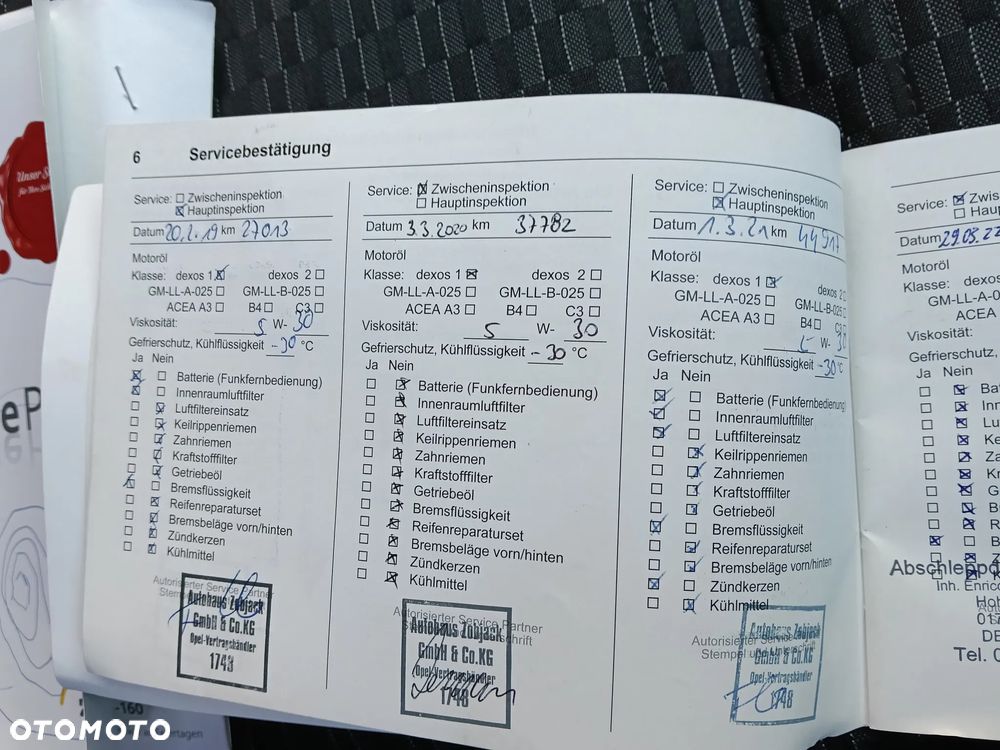 6 Servicebestätigung
Service: Zwischeninspektion
Hauptinspektion
Datum 20.2.19 km 27013
Motoröl
Klasse: dexos 1 dexos 2
GM-LL-A-025 GM-LL-B-025
ACEA A3 B4 C3
Viskosität: 5 W- 30
Gefrierschutz, Kühlflüssigkeit -30 °C
Ja Nein
Batterie (Funkfernbedienung)
Innenraumluftfilter
Luftfiltereinsatz
Keilrippenriemen
Zahnriemen
Kraftstofffilter
Getriebeöl
Bremsflüssigkeit
Reifenreparaturset
Bremsbeläge vorn/hinten
Zündkerzen
Kühlmittel
Autorisierter Service Partner
Autohaus Zobjack
GmbH & Co.KG
Opel-Vertragshändler
1743
Service: Zwischeninspektion
Hauptinspektion
Datum 3.3.2020 km 37782
Motoröl
Klasse: dexos 1 dexos 2
GM-LL-A-025 GM-LL-B-025
ACEA A3 B4 C3
Viskosität: 5 W- 30
Gefrierschutz, Kühlflüssigkeit -30 °C
Ja Nein
Batterie (Funkfernbedienung)
Innenraumluftfilter
Luftfiltereinsatz
Keilrippenriemen
Zahnriemen
Kraftstofffilter
Getriebeöl
Bremsflüssigkeit
Reifenreparaturset
Bremsbeläge vorn/hinten
Zündkerzen
Kühlmittel
Autorisierter Service Partner
Autohaus Zobjack
GmbH & Co.KG
Opel-Vertragshändler
1748
Service: Zwischeninspektion
Hauptinspektion
Datum 1.3.21 km 44917
Motoröl
Klasse: dexos 1 dexos 2
GM-LL-A-025 GM-LL-B-025
ACEA A3 B4 C3
Viskosität: W- 30
Gefrierschutz, Kühlflüssigkeit -30 °C
Ja Nein
Batterie (Funkfernbedienung)
Innenraumluftfilter
Luftfiltereinsatz
Keilrippenriemen
Zahnriemen
Kraftstofffilter
Getriebeöl
Bremsflüssigkeit
Reifenreparaturset
Bremsbeläge vorn/hinten
Zündkerzen
Kühlmittel
Autorisierter
Stempel und
Autohaus Zobjack
GmbH & Co.KG
Opel-Vertragshändler
1748
Service: Z
Haupt
Datum 29.03.22
Motoröl
Klasse: dexos
GM-LL-A-0
ACEA
Viskosität:
Gefrierschutz,
Ja Nein
Bat
In
Lu
Ke
Za
Kr
G
B
R
B
Z
K
Abschleppd
Inh. Enrico
Ho
017
DE
Tel. 0
Unser S
-160
OTOMOTO